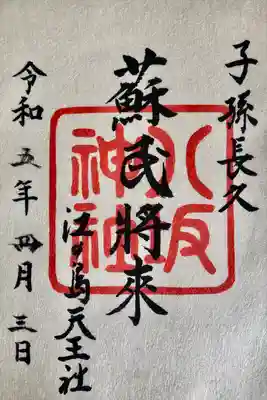 子孫長久
蘇民將來
八坂
神社
江ノ島天王社
令和五年四月三日